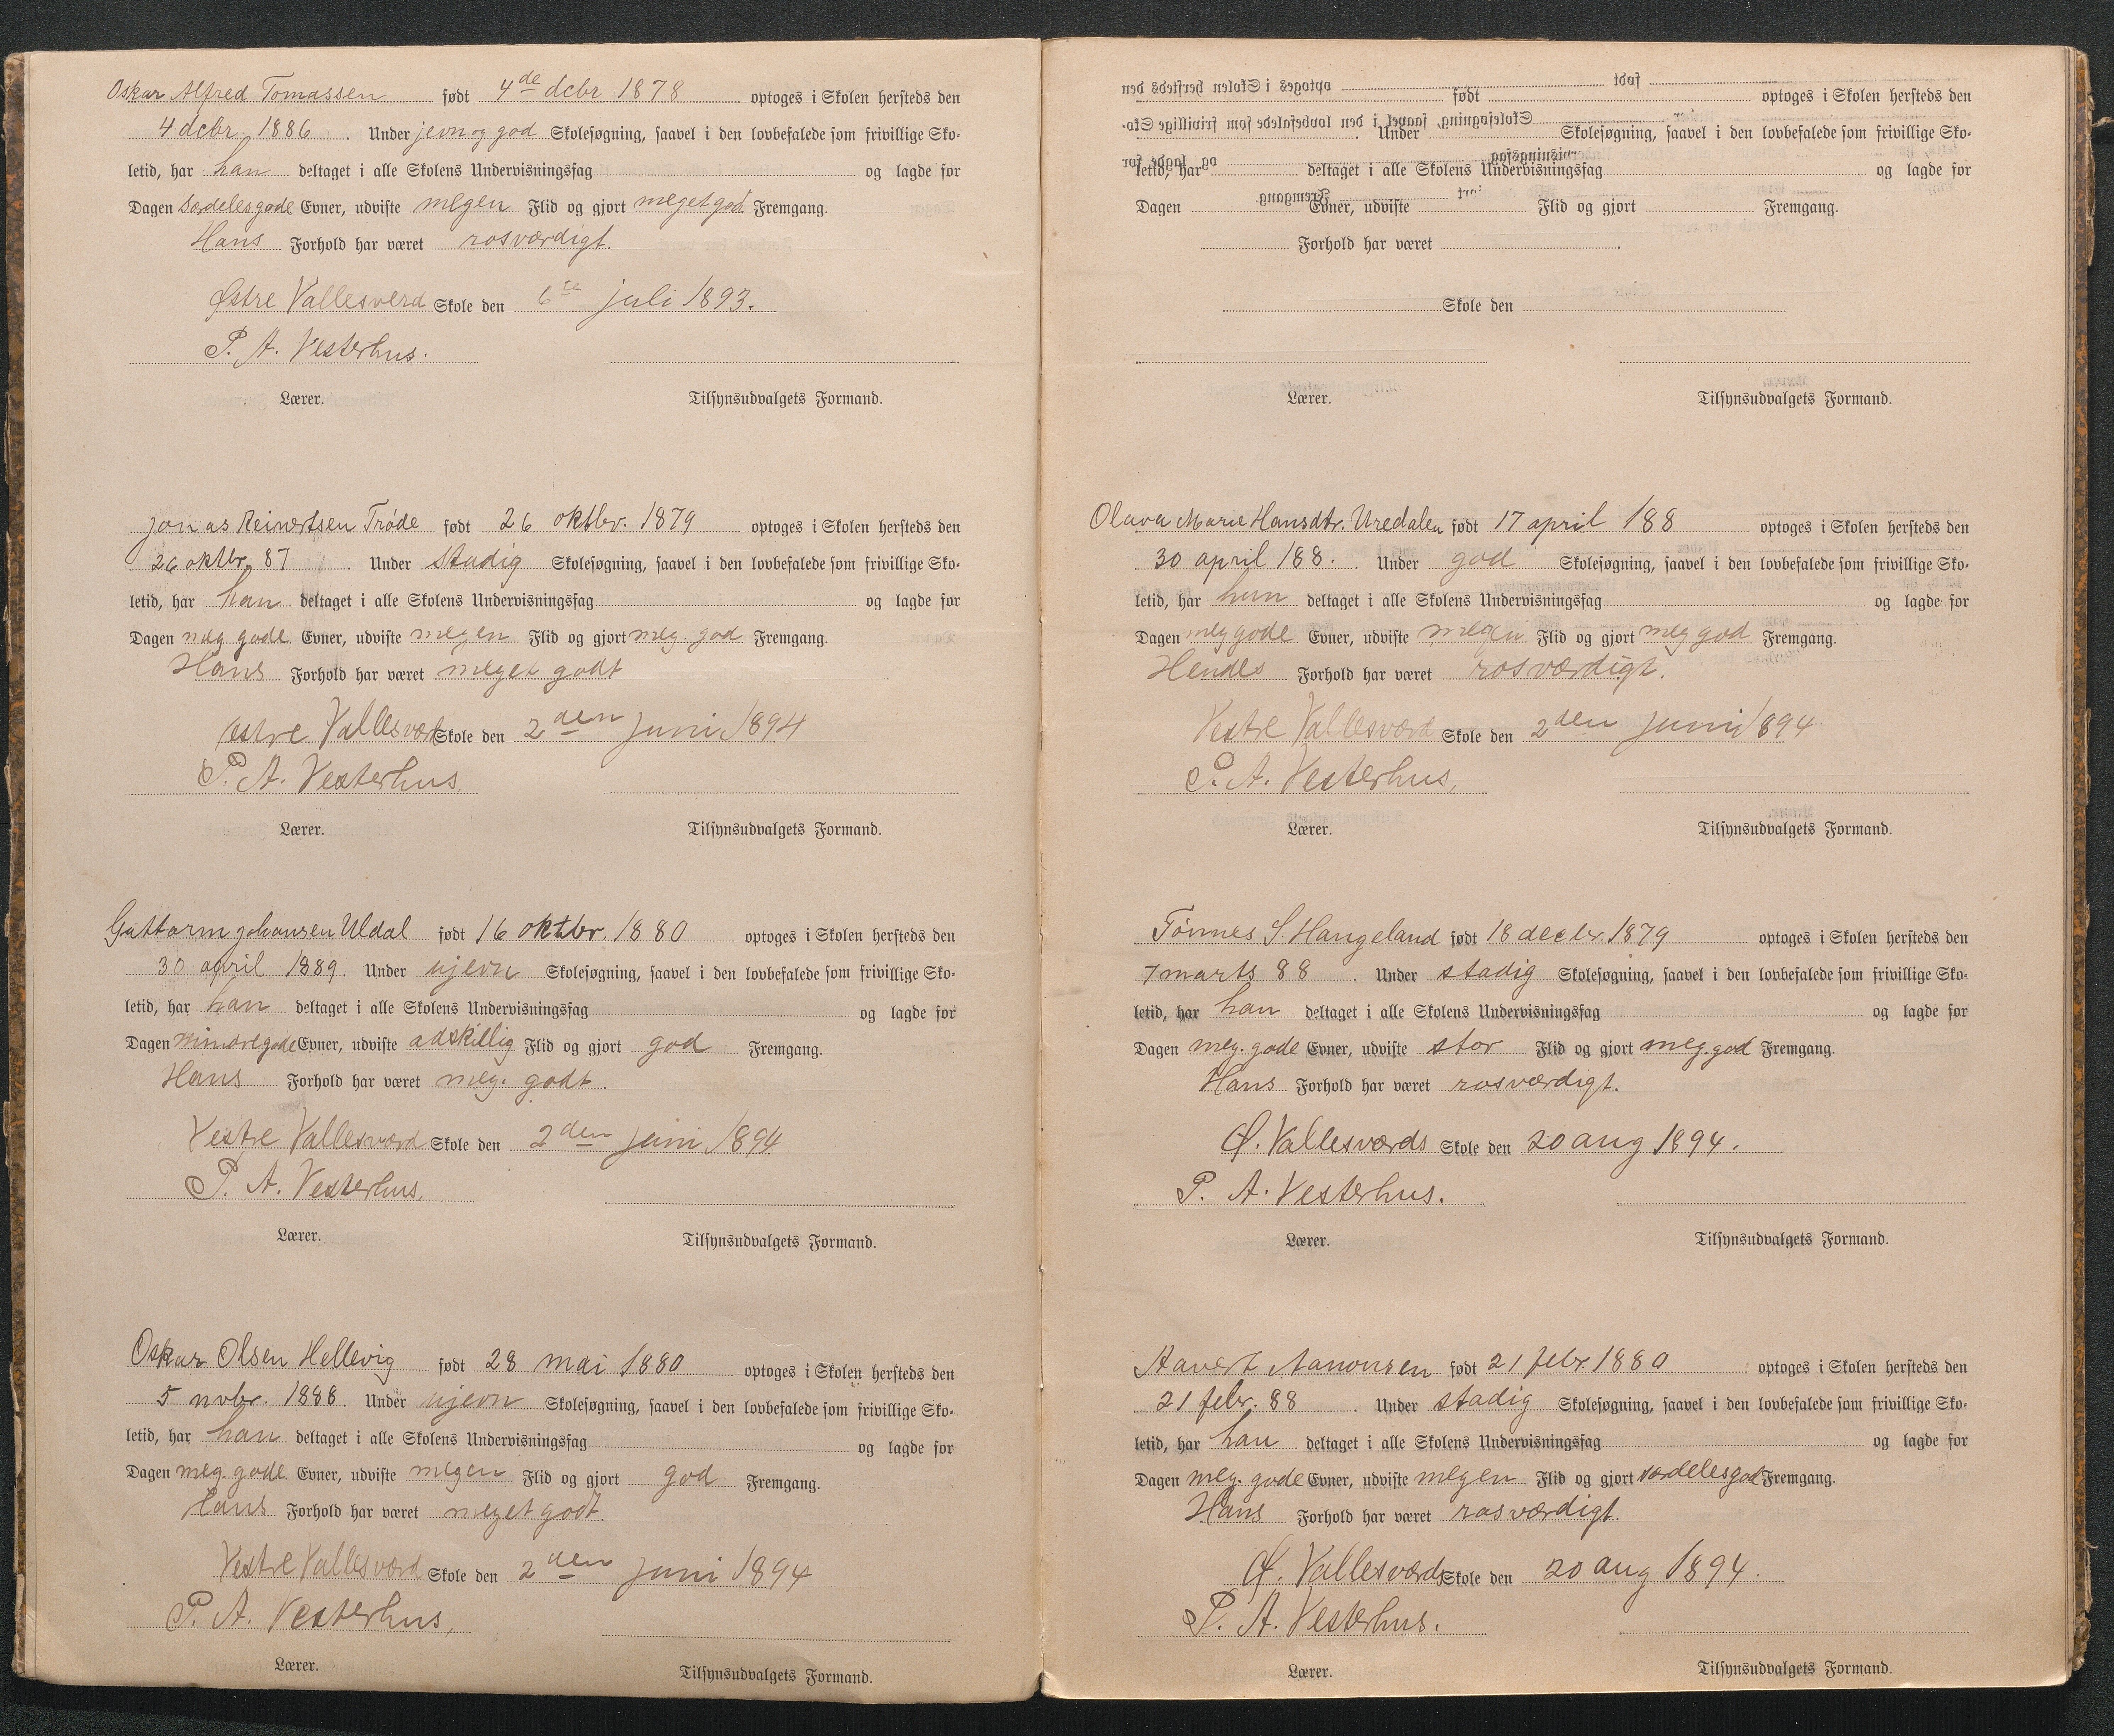 Oskar Alfred Tomassen født 4de dcbr 1878 optoges i Skolen hersteds den
4 dcbr. 1886. Under jevn og god Skolesøgning, saavel i den lovbefalede som frivillige Sko-
letid, har han deltaget i alle Skolens Undervisningsfag og lagde for
Dagen særdeles gode Evner, udviste megen Flid og gjort meget god Fremgang.
Hans Forhold har været rosværdigt.
Østre Vallesverd Skole den 6te juli 1893.
P. A. Vesterhus.
Lærer. Tilsynsudvalgets Formand.
Jonas Reinertsen Trøde født 26 oktbr. 1879 optoges i Skolen hersteds den
26 oktbr. 87. Under stadig Skolesøgning, saavel i den lovbefalede som frivillige Sko-
letid, har han deltaget i alle Skolens Undervisningsfag og lagde for
Dagen meg gode Evner, udviste megen Flid og gjort meg. god Fremgang.
Hans Forhold har været meget godt
Vestre Vallesværd Skole den 2den juni 1894
P. A. Vesterhus.
Lærer. Tilsynsudvalgets Formand.
Guttorm Johansen Uldal født 16 oktbr. 1880 optoges i Skolen hersteds den
30 april 1889. Under ujevn Skolesøgning, saavel i den lovbefalede som frivillige Sko-
letid, har han deltaget i alle Skolens Undervisningsfag og lagde for
Dagen mindre gode Evner, udviste adskillig Flid og gjort god Fremgang.
Hans Forhold har været meg. godt.
Vestre Vallesværd Skole den 2den juni 1894
P. A. Vesterhus.
Lærer. Tilsynsudvalgets Formand.
Oskar Olsen Hellevig født 28 mai 1880 optoges i Skolen hersteds den
5 nvbr. 1888. Under ujevn Skolesøgning, saavel i den lovbefalede som frivillige Sko-
letid, har han deltaget i alle Skolens Undervisningsfag og lagde for
Dagen meg. gode Evner, udviste megen Flid og gjort god Fremgang.
Hans Forhold har været meget godt.
Vestre Vallesværd Skole den 2den juni 1894
P. A. Vesterhus,
Lærer. Tilsynsudvalgets Formand.
født optoges i Skolen hersteds den
Under Skolesøgning, saavel i den lovbefalede som frivillige Sko-
letid, har deltaget i alle Skolens Undervisningsfag og lagde for
Dagen Evner, udviste Flid og gjort Fremgang.
Forhold har været
Skole den
Lærer. Tilsynsudvalgets Formand.
Olava Marie Hansdtr. Uredalen født 17 april 188 optoges i Skolen hersteds den
30 april 188. Under god Skolesøgning, saavel i den lovbefalede som frivillige Sko-
letid, har hun deltaget i alle Skolens Undervisningsfag og lagde for
Dagen meg gode Evner, udviste megen Flid og gjort meg god Fremgang.
Hendes Forhold har været rosværdigt.
Vestre Vallesværd Skole den 2den juni 1894
P. A. Vesterhus,
Lærer. Tilsynsudvalgets Formand.
Tønnes S. Hangeland født 18 decbr. 1879 optoges i Skolen hersteds den
7 marts 88. Under stadig Skolesøgning, saavel i den lovbefalede som frivillige Sko-
letid, har han deltaget i alle Skolens Undervisningsfag og lagde for
Dagen meg. gode Evner, udviste stor Flid og gjort meg. god Fremgang.
Hans Forhold har været rosværdigt.
Ø. Vallesværds Skole den 20 aug 1894.
P. A. Vesterhus.
Lærer. Tilsynsudvalgets Formand.
Aanonsen født 21 febr. 1880 optoges i Skolen hersteds den
21 febr. 88. Under stadig Skolesøgning, saavel i den lovbefalede som frivillige Sko-
letid, har han deltaget i alle Skolens Undervisningsfag og lagde for
Dagen meg. gode Evner, udviste megen Flid og gjort særdeles god Fremgang.
Hans Forhold har været rosværdigt.
Ø. Vallesværds Skole den 20 aug 1894.
P. A. Vesterhus.
Lærer. Tilsynsudvalgets Formand.